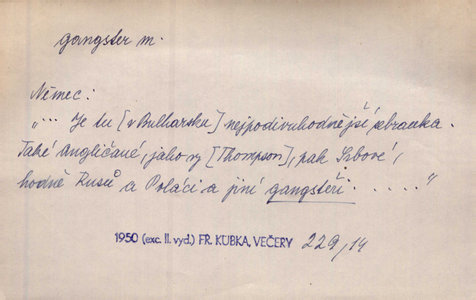 gangster m.
Němec:
„... Je tu [v Bulharsku] nejpodivuhodnější sebranka.
Také Angličané, jako vy [Thompson], pak Srbové,
hodně Rusů a Poláci a jiní gangsteři. . . . . ."
1950 (exc. II. vyd.) FR. KUBKA, VEČERY 229,14